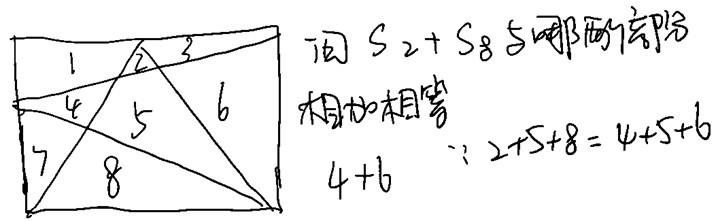 1 2 3
4 5 6
7 8
问 S2+S8与哪两个部分
相加相等
4+6 ∵2+5+8=4+5+6